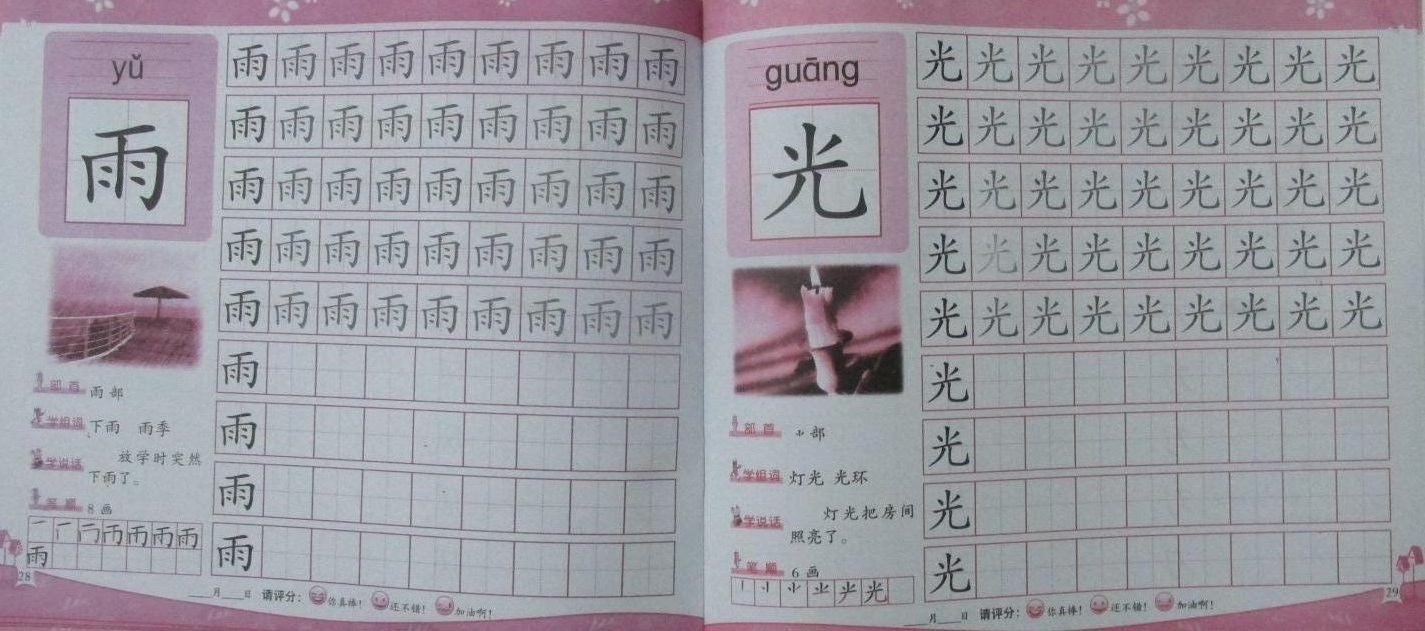 yǔ
雨
雨雨雨雨雨雨雨雨雨
雨雨雨雨雨雨雨雨雨
雨雨雨雨雨雨雨雨雨
雨雨雨雨雨雨雨雨雨
雨雨雨雨雨雨雨雨雨
雨
雨
雨
雨
部首 雨部
学组词 下雨 雨季
学说话 放学时突然
下雨了。
笔顺 8画
雨
28
____月____日 请评分： 你真棒！ 还不错！ 加油啊！
guāng
光
光光光光光光光光光
光光光光光光光光光
光光光光光光光光光
光光光光光光光光光
光光光光光光光光光
光
光
光
光
部首 ⺌部
学组词 灯光 光环
学说话 灯光把房间
照亮了。
笔顺 6画
光
29
____月____日 请评分： 你真棒！ 还不错！ 加油啊！